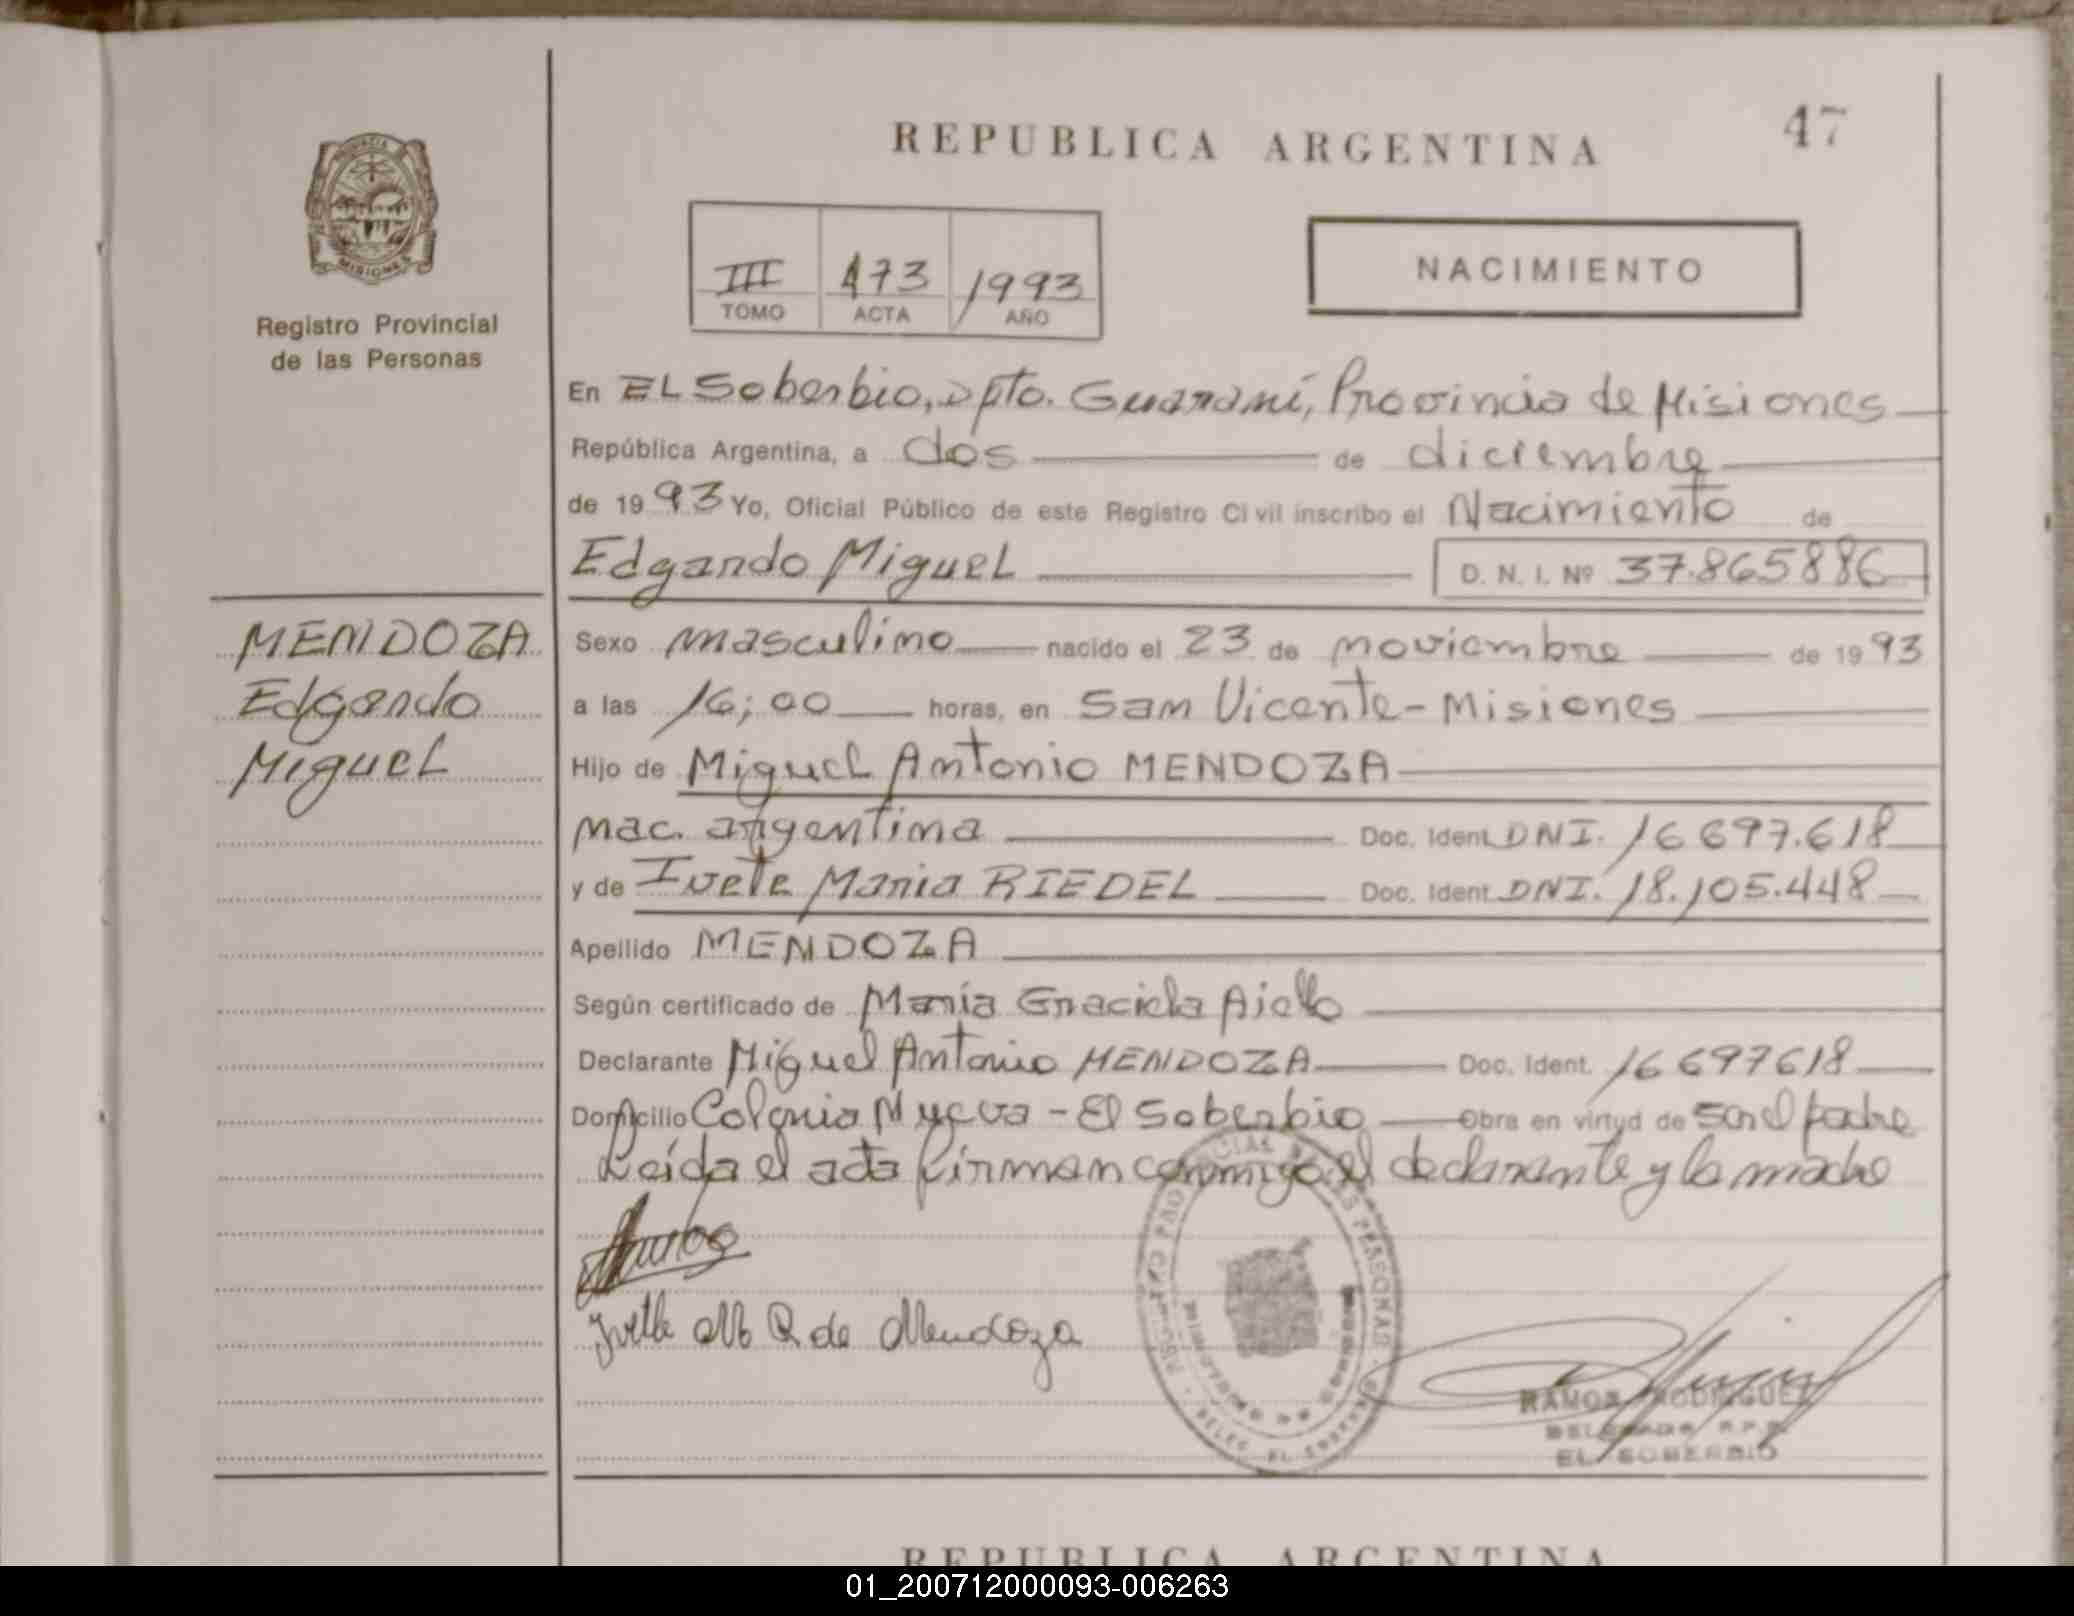 47
REPUBLICA ARGENTINA
PROVINCIA
MISIONES
Registro Provincial
de las Personas
III 473 1993
TOMO ACTA AÑO
NACIMIENTO
En EL Soberbio, Dpto. Guaraní, Provincia de Misiones
República Argentina, a dos de diciembre
de 1993 Yo, Oficial Público de este Registro Civil inscribo el Nacimiento de
Edgardo Miguel D. N. I. Nº 37.865886
MENDOZA
Edgardo
Miguel
Sexo masculino nacido el 23 de noviembre de 1993
a las 16;00 horas, en San Vicente - Misiones
Hijo de Miguel Antonio MENDOZA
nac. argentina Doc. Ident. DNI. 16 697.618
y de Ivete Maria RIEDEL Doc. Ident. DNI. 18.105.448
Apellido MENDOZA
Según certificado de María Graciela Aiello
Declarante Miguel Antonio MENDOZA Doc. Ident. 16 697618
Domicilio Colonia Nueva - El Soberbio Obra en virtud de ser el padre
Leída el acta firman conmigo el declarante y la madre
Ivette M R de Mendoza
RAMON RODRIGUEZ
DELEGADO R.P.P.
EL SOBERBIO
REPUBLICA ARGENTINA
01_200712000093-006263